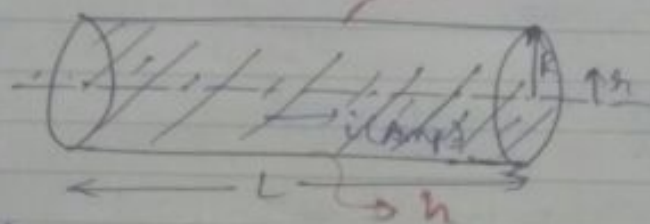 R
r
i (Amp)
L
h